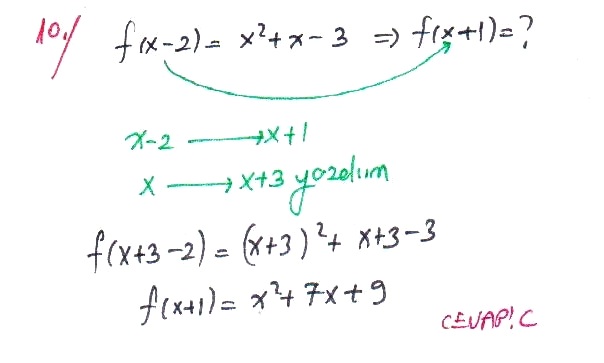 10./ f(x-2) = x²+x-3 ⇒ f(x+1)=?
x-2 → x+1
x → x+3 yazalım
f(x+3-2) = (x+3)²+ x+3-3
f(x+1) = x²+7x+9
CEVAP: C